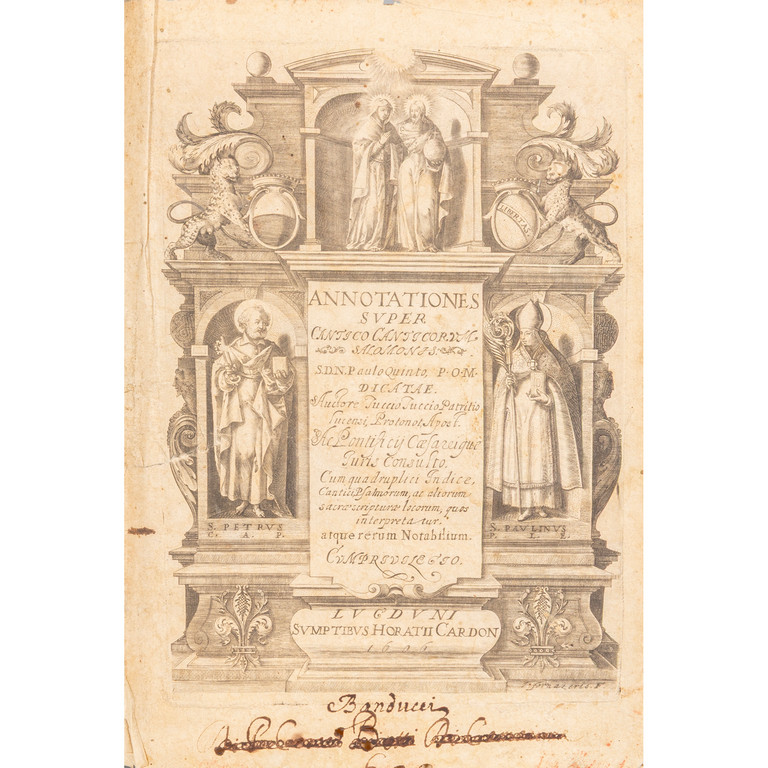 LIBERTAS
ANNOTATIONES
SVPER
CANTICO CANTICORVM
SALOMONIS.
S.D.N. Paulo Quinto, P.O.M.
DICATAE.
Auctore Tuccio Tuccio Patritio
lucensi, Protonot. Apost.
Ac Pontificij Cæsareique
Iuris Consulto.
Cum quadruplici Indice,
Cantici, Psalmorum, ac aliorum
sacræ scripturæ locorum, quos
interpretatur.
atque rerum Notabilium.
CVM PRIVILEGIO.
S. PETRVS
C. A. P.
S. PAVLINVS
P. L. E.
LVGDVNI
SVMPTIBVS HORATII CARDON
1606
Banducci